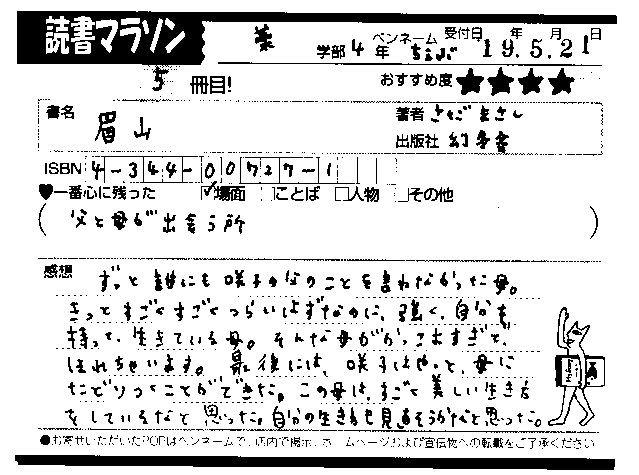 読書マラソン 薬 学部 4 年 ペンネーム ちぇぶ 受付日 19年5月21日
5 冊目! おすすめ度 ★★★★
書名 眉山 著者 さだまさし
出版社 幻冬舎
ISBN 4-344-00727-1
♥一番心に残った ✓場面 □ことば □人物 □その他
( 父と母が出会う所 )
感想 ずっと誰にも咲子の父のことを言わなかった母。
きっとすごくすごくつらいはずなのに、強く、自分を
持って、生きている母。そんな母がかっこよすぎて、
ほれちゃいます。最後には、咲子はやっと、母に
たどりつくことができた。この母は、すごく美しい生き方
をしているなと思った。自分の生き方も見直そうかなと思った。
●お寄せいただいたPOPはペンネームで、店内で掲示、ホームページおよび宣伝物への転載をご了承ください